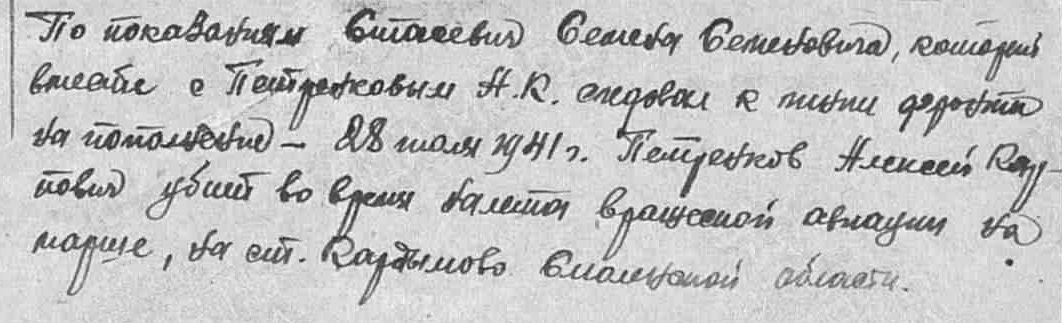 По показаниям Стасевич Семена Семеновича, который
вместе с Петренковым А.К. следовал к линии фронта
на пополнение – 28 июля 1941 г. Петренков Алексей Кар-
пович убит во время налета вражеской авиации на
марше, на ст. Кардымово Смоленской области.